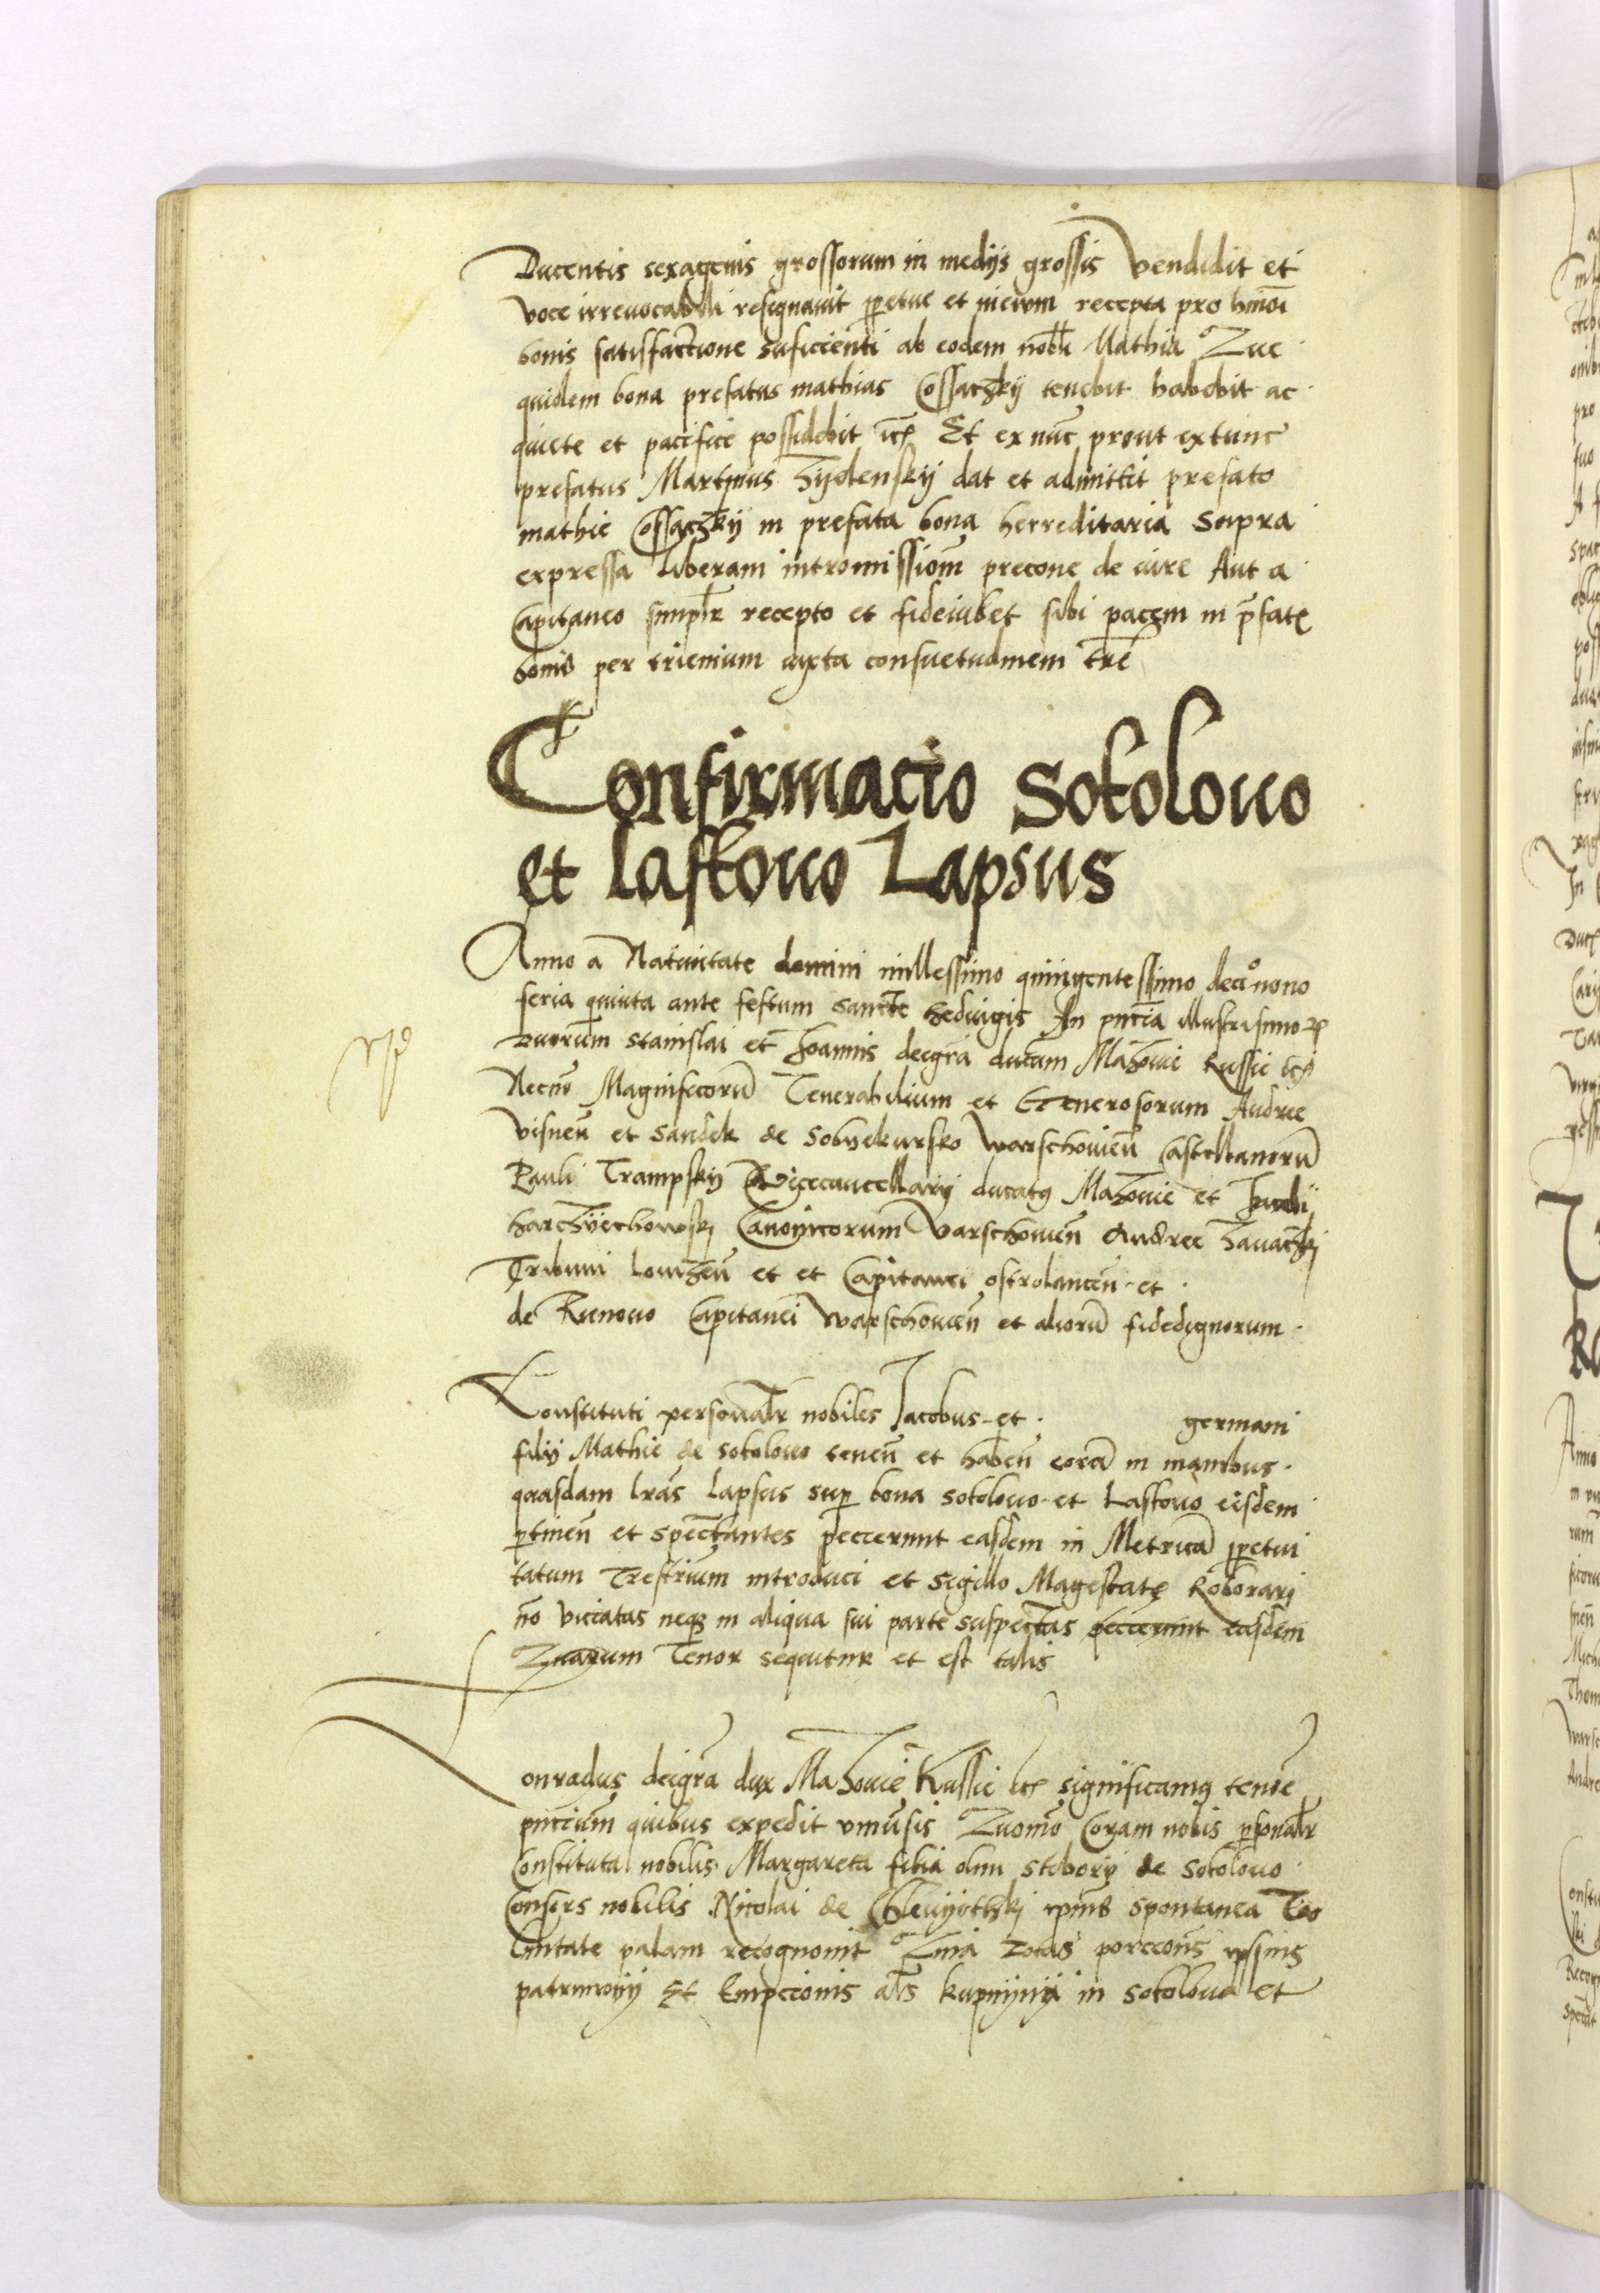 Ducentis sexagenis grossorum in medijs grossis Vendidit et
voce irreuocabili resignauit ꝑpetue et in ewm recepta pro hmoi
bonis satisfactione suficienti ab eodem nobli Mathia Que
quidem bona prefatus mathias Cossaczkij tenebit habebit ac
quiete et pacifice possidebit etc Et ex nuc prout extunc
prefatus Martinus Zijelenskij dat et admittit prefato
mathie Cossaczkij in prefata bona herreditaria supra
expressa liberam intromissiom precone de iure Aut a
Capitaneo simplr recepto et fideiubet sibi pacem in pfatis
bonis per trienium iuxta consuetudinem tre
Confirmacio Sokolouo
et laskouo Lapsus
Anno a Natiuitate domini millessimo quingentessimo decionono
feria quinta ante festum sancte hedwigis In pntia illustrissimoꝝ
Duorum Stanislai et Joannis deigra ducum Mazouie Russie etc
Necno Magnificoru Venerabilium et Generosorum Andree
Visnen et Sandek de Sobijekursko Warschouien Castellanoru
Pauli Trampskij Vicecancellarij ducatus Mazouie et
Canonicorum Varschouien Andree Zauaczki
Tribuni lomzen et et Capitanei ostrolancen et
de Runouo Capitanei Warschouien et alioru fidedignorum
Constituti personalr nobiles Jacobus et germani
filij Mathie de Sokolouo tenen et haben cora in manibus
quasdam lras lapsus sup bona Sokolouo et Laskouo eisdem
ptinen et spectantes peccierunt easdem in Metrica ꝑpetui
tatum Trestrium introduci et Sigillo Magestatis Roborari
no viciatas neqꝫ in aliqua sui parte suspectas peccierunt easdem
Quarum Tenor sequitur et est talis
Conradus deigra dux Mazouie Russie etc significamus tenore
pntium quibus expedit vniusis Quomo Coram nobis psonalr
Constituta nobilis Margareta filia olim stiborij de Sokolouo
Consors nobilis Nicolai de spontanea Vo
luntate palam recognouit Quia totas porccons ipsius
patrimonij Et Empccionis als kupnijnij in Sokolouo et